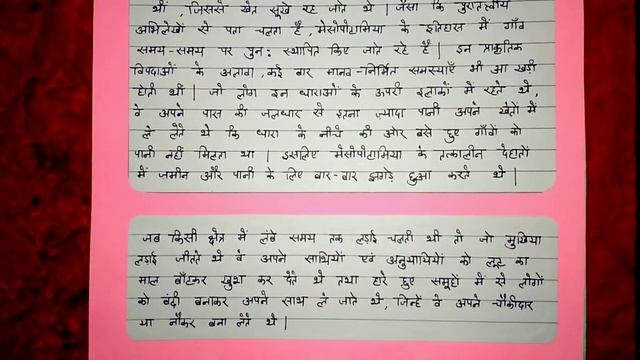 थीं, जिससे खेत सूखे रह जाते थे | जैसा कि पुरातत्वीय
अभिलेखों से पता चलता है, मेसोपोटामिया के इतिहास में गाँव
समय-समय पर पुन: स्थापित किए जाते रहे हैं | इन प्राकृतिक
विपदाओं के अलावा, कई बार मानव-निर्मित समस्याएँ भी आ खड़ी
होती थीं | जो लोग इन धाराओं के ऊपरी इलाकों में रहते थे,
वे अपने पास की जलधार से इतना ज्यादा पानी अपने खेतों में
ले लेते थे कि धारा के नीचे की ओर बसे हुए गाँवों को
पानी नहीं मिलता था | इसलिए मेसोपोटामिया के तत्कालीन देहातों
में जमीन और पानी के लिए बार-बार झगड़े हुआ करते थे |
जब किसी क्षेत्र में लंबे समय तक लड़ाई चलती थी तो जो मुखिया
लड़ाई जीतते थे वे अपने साथियों एवं अनुयायियों को लूट का
माल बाँटकर खुश कर देते थे तथा हारे हुए समूहों में से लोगों
को बंदी बनाकर अपने साथ ले जाते थे, जिन्हें वे अपने चौकीदार
या नौकर बना लेते थे |